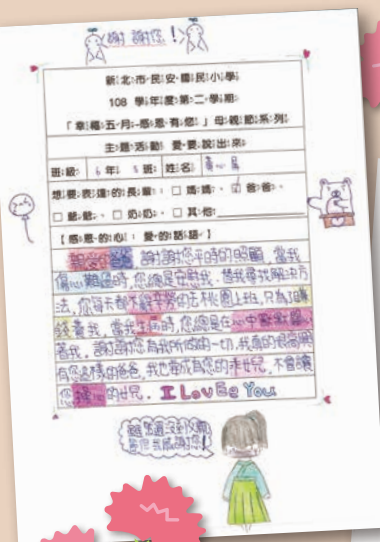 謝謝您!
新北市民安國民小學
108 學年度第二學期
「幸福五月-感恩有您」母親節系列
主題活動 愛要說出來
班級: 6年 8班 姓名
想要表達的長輩: □ 媽媽、☑ 爸爸、
□ 爺爺、□ 奶奶、□ 其他
【感恩的心: 愛的話語】
親愛的爸爸 謝謝您平時的照顧,當我
傷心難過時,您總是安慰我,替我尋找解決方
法,您每天都不辭辛勞的去桃園上班,只為了賺
錢養我,當我生病時,您總是在心中默默關心
著我,謝謝您為我所做的一切,我真的很高興
有您這樣的爸爸,我也會成為您的乖女兒,不會讓
您擔心的女兒. I LovEe You
雖然還沒到父親
節但我感謝您!